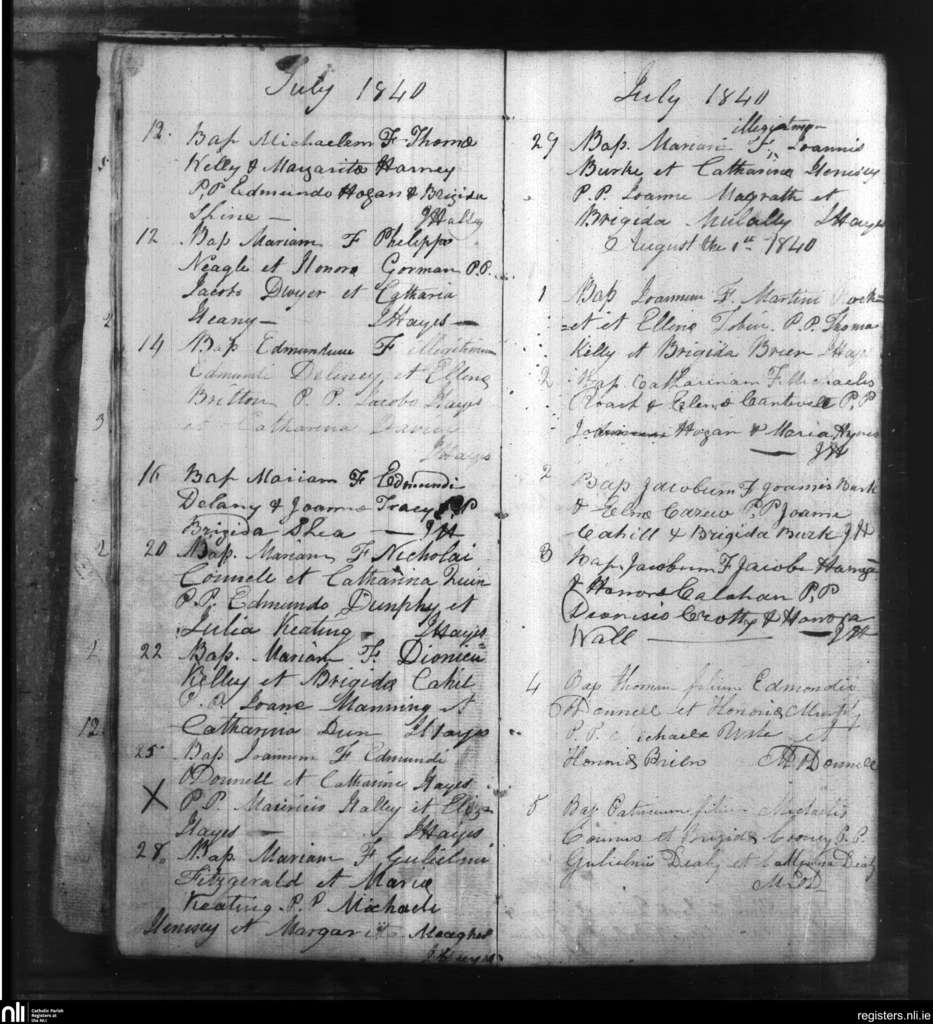 July 1840
12. Bap Michaelem F Thomæ
Kelly & Margarita Harney
P,P Edmundo Hogan & Brigida
Shine — JHally
12 Bap Mariam F Philippi
Neagle et Honora Gorman P.P.
Jacobo Dwyer et Catharia
Heany — JHayes —
14 Bap Edmundum F illegitimum
Edmundi Deleney et Ellena
Britton P. P. Jacobo Hayes
et Catharina
JHayes
16 Bap Mariam F Edmundi
Delany & Joanna Tracy P.P
Brigida Shea — JH
20 Bap. Mariam F Nicholai
Connell et Catharina Quin
P.P. Edmundo Dunphy et
Julia Keating — JHayes
22 Bap. Mariam F. Dionicii
Kelley et Brigida Cahil
P. P. Joane Manning et
Catharina Dun JHayes
25 Bap Joannem F Edmundi
ODonnell et Catharine Hayes
X P.P. Mauricius Halley et Eliza
Hayes — JHayes
28. Bap. Mariam F Gulielmi
Fitzgerald et Maria
Keating. P.P Michaele
Henesey et Margarita Meagher
JHayes
July 1840
illegitima
29 Bap. Mariam F. Joannis
Burke et Catharina Henissy
P.P. Joanne Magrath et
Brigida Mulally JHayes
August the 1st 1840
1 Bap Joannem F. Martini Rock=
et et Ellena Tobin. P.P. Thoma
Kelly et Brigida Brien JHayes
2 Bap Catharinam F. Michaelis
Roach & Elena Cantwell P,P
Hogan & Maria Hynes
— JH
2 Bap Jacobum F Joannis Burk
& Elna Carew P,P Joanne
Cahill & Brigida Burk JH
3 Bap. Jacobum F Jacobi
& Honora Calahan P,P
Dionisio Crotty & Honora
Wall — JH
4 Bap Thomam filium Edmondii
ODonnell et Honoriæ Murphy
P.P. Michaele et
Honoriæ Brien MODonnell
5 Bap Patricium filium Michaelis
et Brigidæ Cooney P.P.
Gulielmo Dealy et Catharina Dealy
MOD
nli
Catholic Parish
Registers at
the NLI
registers.nli.ie